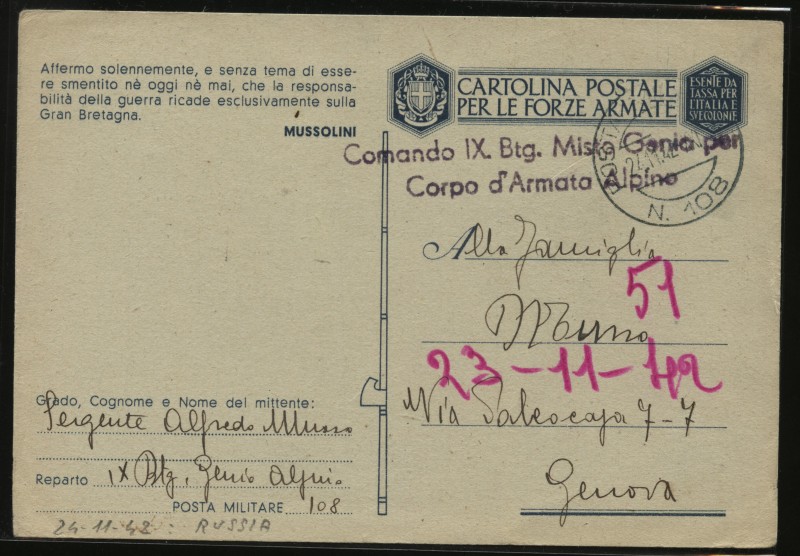 Affermo solennemente, e senza tema di esse-
re smentito nè oggi nè mai, che la responsa-
bilità della guerra ricade esclusivamente sulla
Gran Bretagna.
MUSSOLINI
CARTOLINA POSTALE
PER LE FORZE ARMATE
ESENTE DA
TASSA PER
L'ITALIA E
SUE COLONIE
Comando IX. Btg. Misto Genio per
Corpo d'Armata Alpino
N. 108
Alla Famiglia
51
Musso
23-11-42
Via Paleocapa 7-7
Genova
Grado, Cognome e Nome del mittente:
Sergente Alfredo Musso
Reparto IX Btg. Genio Alpino
POSTA MILITARE 108
24-11-42 : RUSSIA